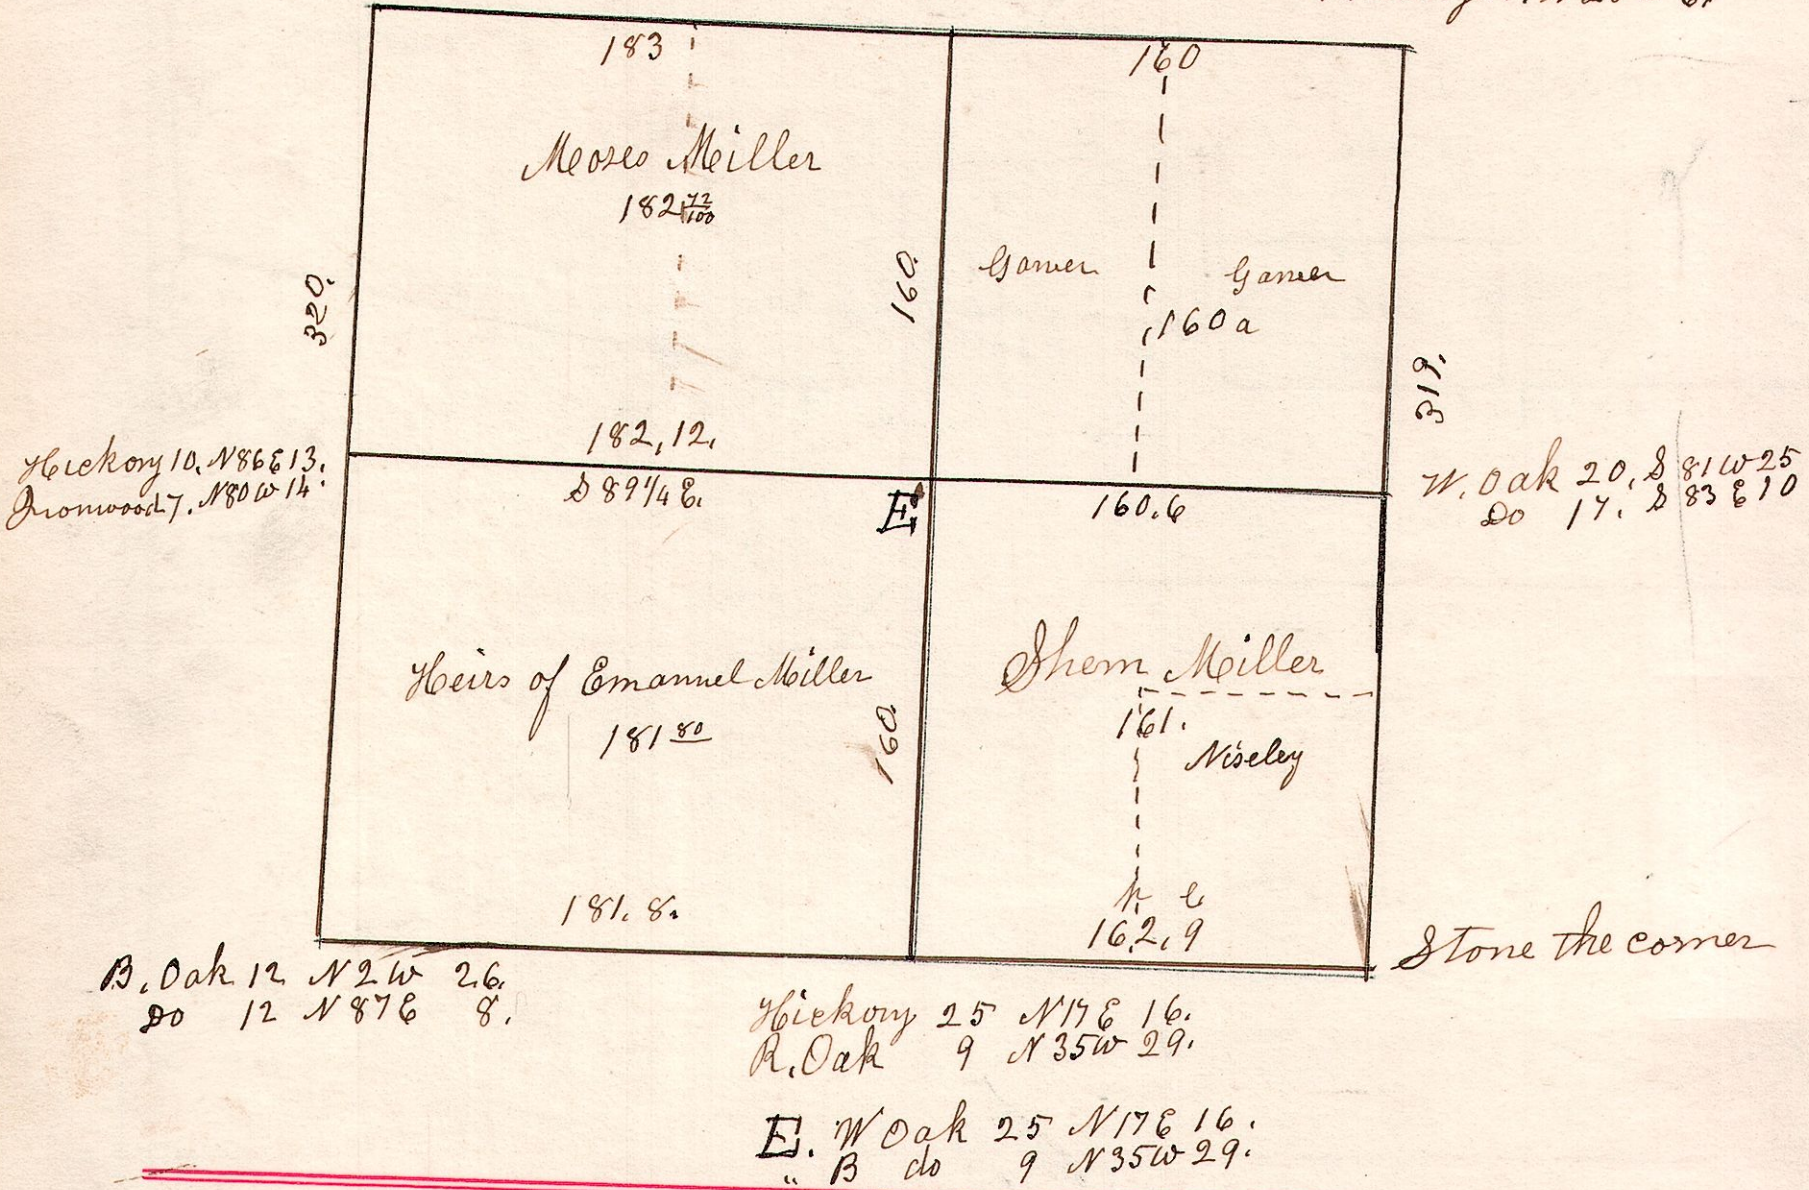 183
160
Moses Miller
182 72/100
Garver
Garver
160 a
320.
160.
319.
182,12.
Hickory 10. N86E 13.
Ironwood 7. N80W 14.
S 89 1/4 E.
E.
160.6
W. Oak 20. S 81 W 25
Do 17. S 83 E 10
Shem Miller
Heirs of Emanuel Miller
161.
181 80
160.
Niseley
181. 8.
162,9
Stone the corner
B. Oak 12 N2W 26.
Do 12 N87E 8.
Hickory 25 N17E 16.
R. Oak 9 N35W 29.
E. W Oak 25 N17E 16.
" B do 9 N35W 29.